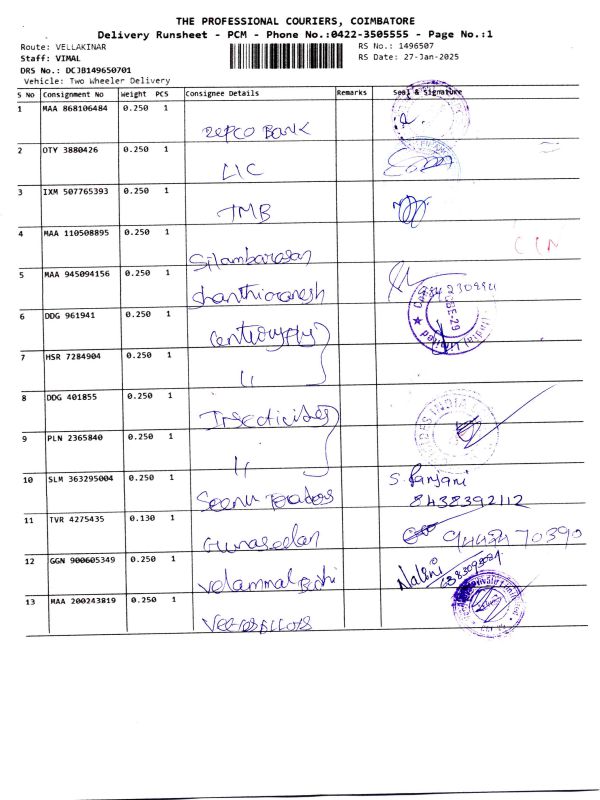 THE PROFESSIONAL COURIERS, COIMBATORE
Delivery Runsheet - PCM - Phone No.:0422-3505555 - Page No.:1
Route: VELLAKINAR RS No.: 1496507
Staff: VIMAL RS Date: 27-Jan-2025
DRS No.: DCJB149650701
Vehicle: Two Wheeler Delivery
S No Consignment No Weight PCS Consignee Details Remarks Seal & Signature
1 MAA 868106484 0.250 1 repco Bank
2 OTY 3880426 0.250 1 LIC
3 IXM 507765393 0.250 1 TMB
4 MAA 110508895 0.250 1 Silambarasan
5 MAA 945094156 0.250 1
6 DDG 961941 0.250 1
7 HSR 7284904 0.250 1 "
8 DDG 401855 0.250 1 Insecticides
9 PLN 2365840 0.250 1 "
10 SLM 363295004 0.250 1 Seenu Traders S. Ranjani
8438392112
11 TVR 4275435 0.130 1 Gunaseelan
12 GGN 900605349 0.250 1 Velammal Bodhi Nalini
13 MAA 200243819 0.250 1